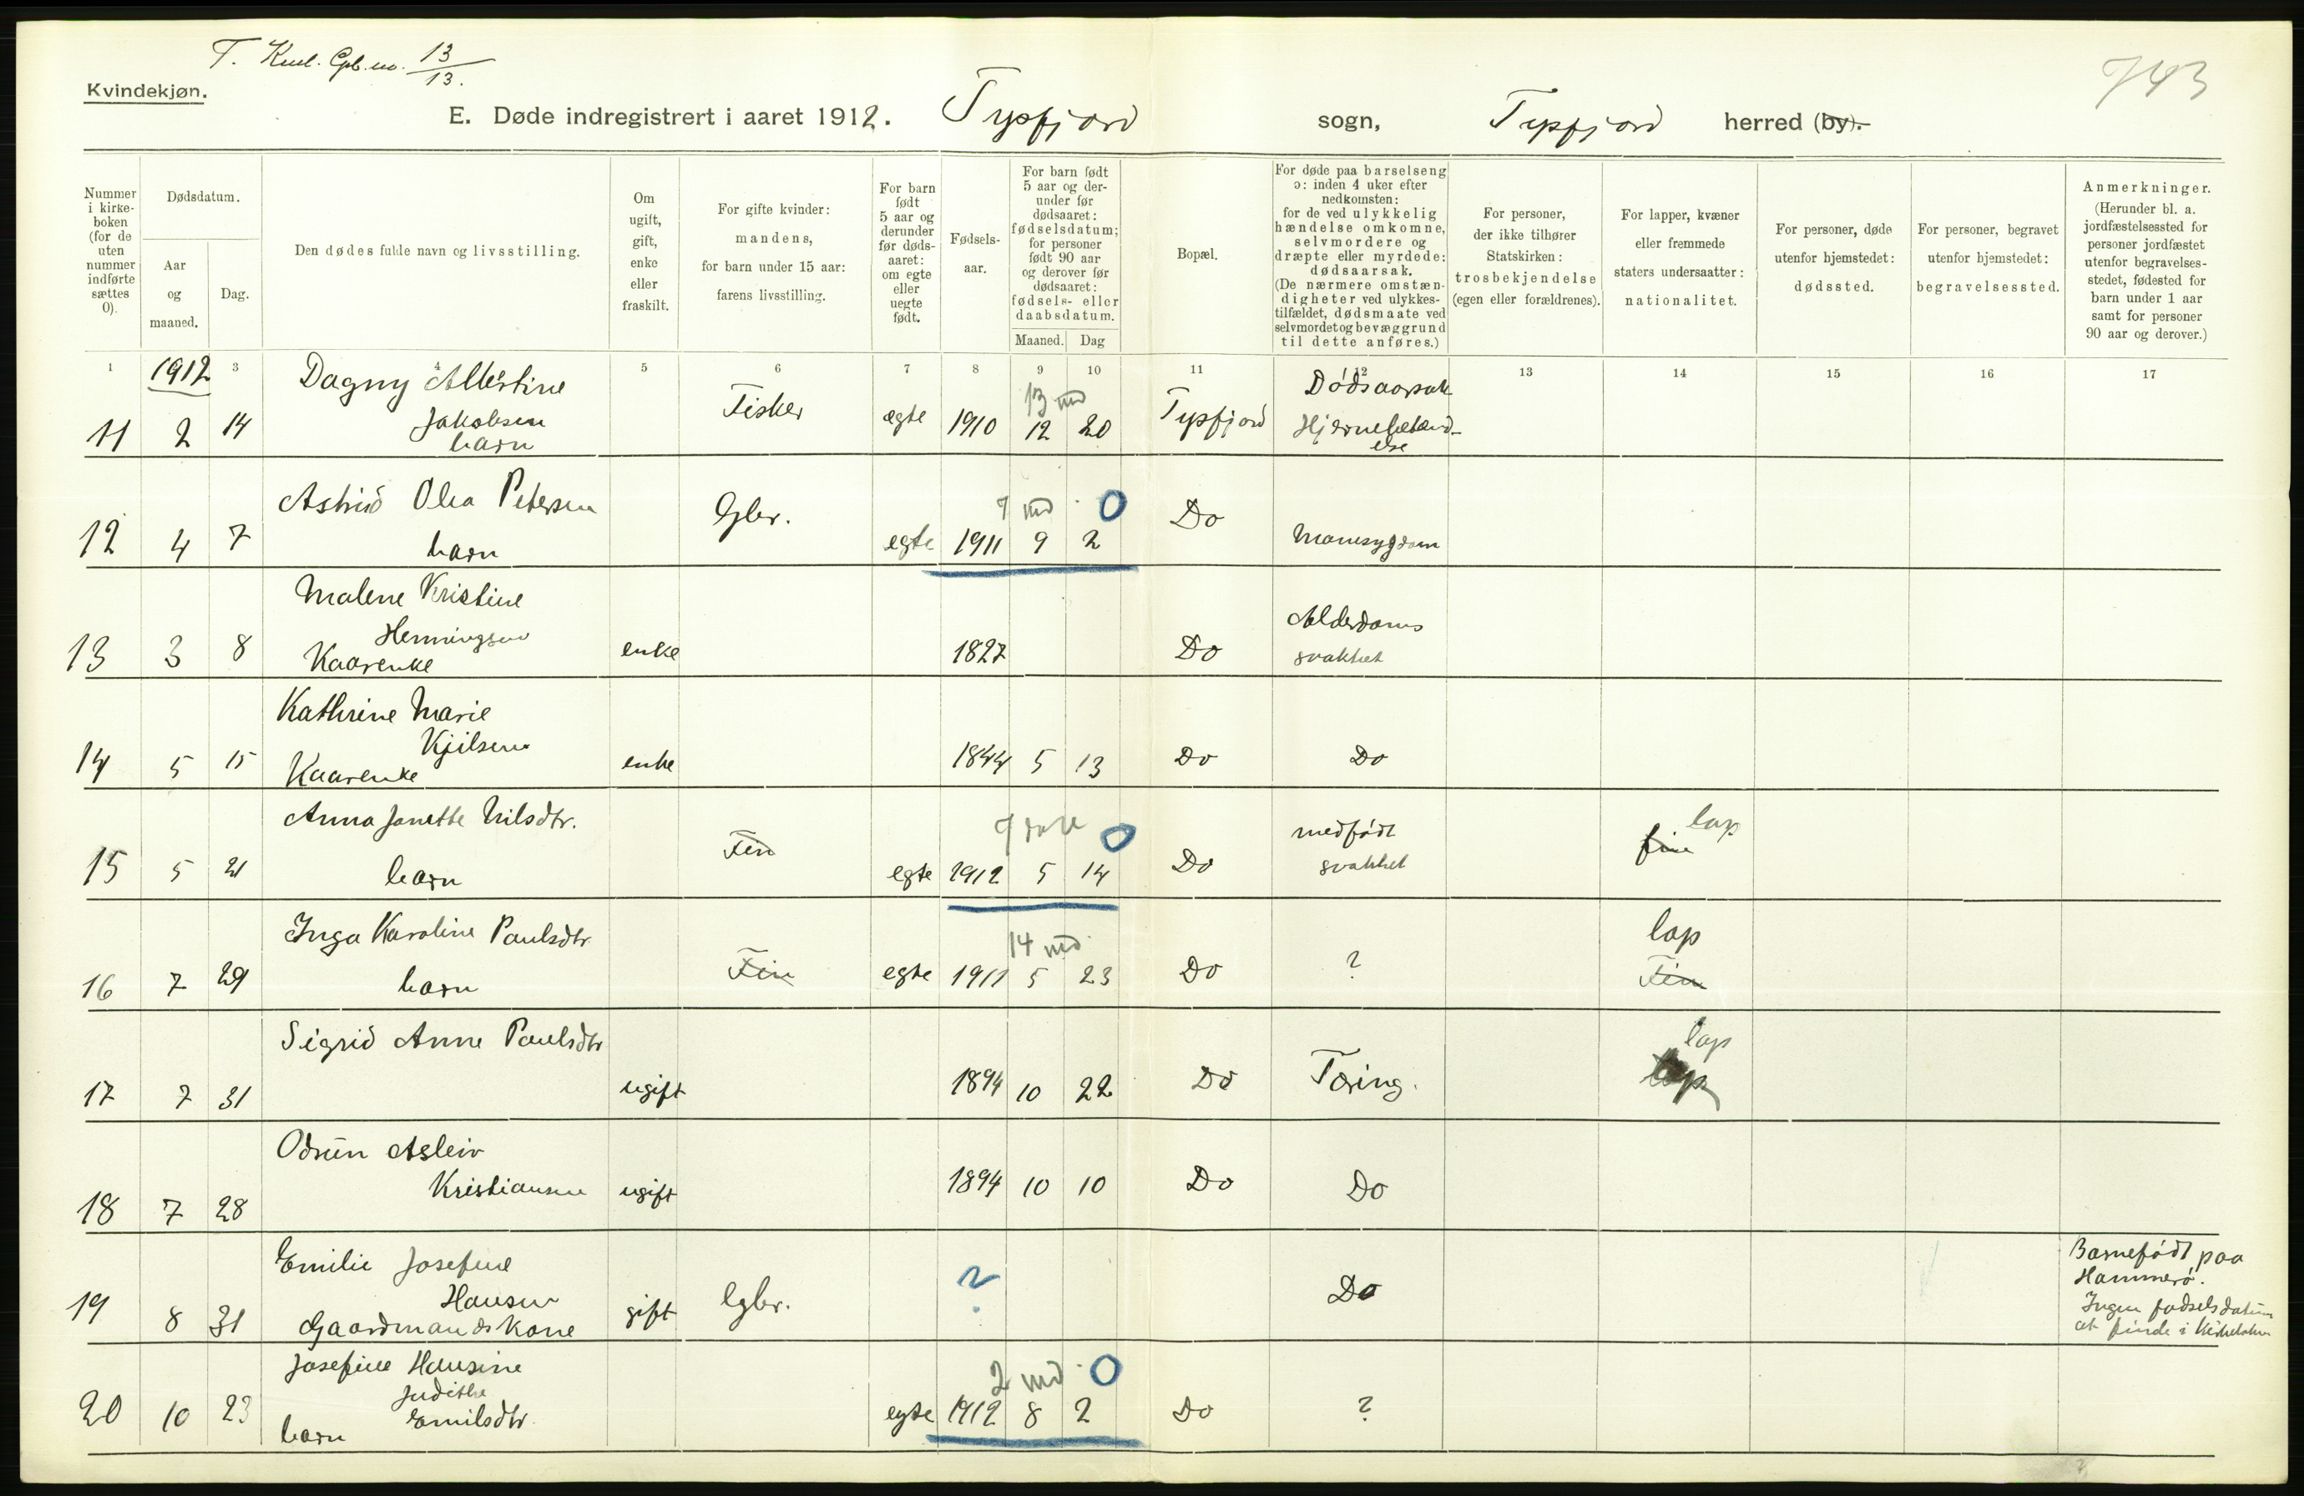 T. Kml. Gpb. no. 13/13.
743
Kvindekjøn.
E. Døde indregistrert i aaret 1912. Tysfjord sogn, Tysfjord herred (by).
Nummer i kirkeboken (for de uten nummer indførte sættes 0).
Dødsdatum.
Aar og maaned.
Dag.
Den dødes fulde navn og livsstilling.
Om ugift, gift, enke eller fraskilt.
For gifte kvinder: mandens, for barn under 15 aar: farens livsstilling.
For barn født 5 aar og derunder før dødsaaret: om egte eller uegte født.
Fødselsaar.
For barn født 5 aar og derunder før dødsaaret: fødselsdatum; for personer født 90 aar og derover før dødsaaret: fødsels- eller daabsdatum.
Maaned. Dag
Bopæl.
For døde paa barselseng ɔ: inden 4 uker efter nedkomsten: for de ved ulykkelig hændelse omkomne, selvmordere og dræpte eller myrdede: dødsaarsak. (De nærmere omstændigheter ved ulykkestilfældet, dødsmaate ved selvmordet og bevæggrund til dette anføres.)
For personer, der ikke tilhører Statskirken: trosbekjendelse (egen eller forældrenes).
For lapper, kvæner eller fremmede staters undersaatter: nationalitet.
For personer, døde utenfor hjemstedet: dødssted.
For personer, begravet utenfor hjemstedet: begravelsessted.
Anmerkninger. (Herunder bl. a. jordfæstelsessted for personer jordfæstet utenfor begravelsesstedet, fødested for barn under 1 aar samt for personer 90 aar og derover.)
1 3 4 5 6 7 8 9 10 11 12 13 14 15 16 17
1912
Dødsaarsak
11 2 14 Dagny Albertine Jakobsen barn Fisker egte 1910 12 20 13 md Tysfjord Hjernebetændelse
12 4 7 Astrid Olea Petersen barn Gbr. egte 1911 9 2 7 md 0 Do Mavesygdom
13 3 8 Malene Kristine Henningsen Kaarenke enke 1827 Do Alderdoms svakhet
14 5 15 Kathrine Marie Kjilsen Kaarenke enke 1844 5 13 Do Do
15 5 21 Anna Janette Nilsdtr. barn Fin egte 1912 5 14 7 dage 0 Do medfødt svakhet fin lap
16 7 29 Inga Karoline Paulsdtr barn Fin egte 1911 5 23 14 md. Do ? lap Fin
17 7 31 Sigrid Anne Paulsdtr ugift 1894 10 22 Do Tæring. lap lap
18 7 28 Odrun Asleiv Kristiansen ugift 1894 10 10 Do Do
19 8 31 Emilie Josefine Hansen Gaardmandskone gift Gbr. ? Do Barnefødt paa Hammerø. Ingen fødselsdatum at finde i Kirkeboken
20 10 23 Josefine Hansine Judithe Emilsdtr. barn egte 1912 8 2 2 md 0 Do ?